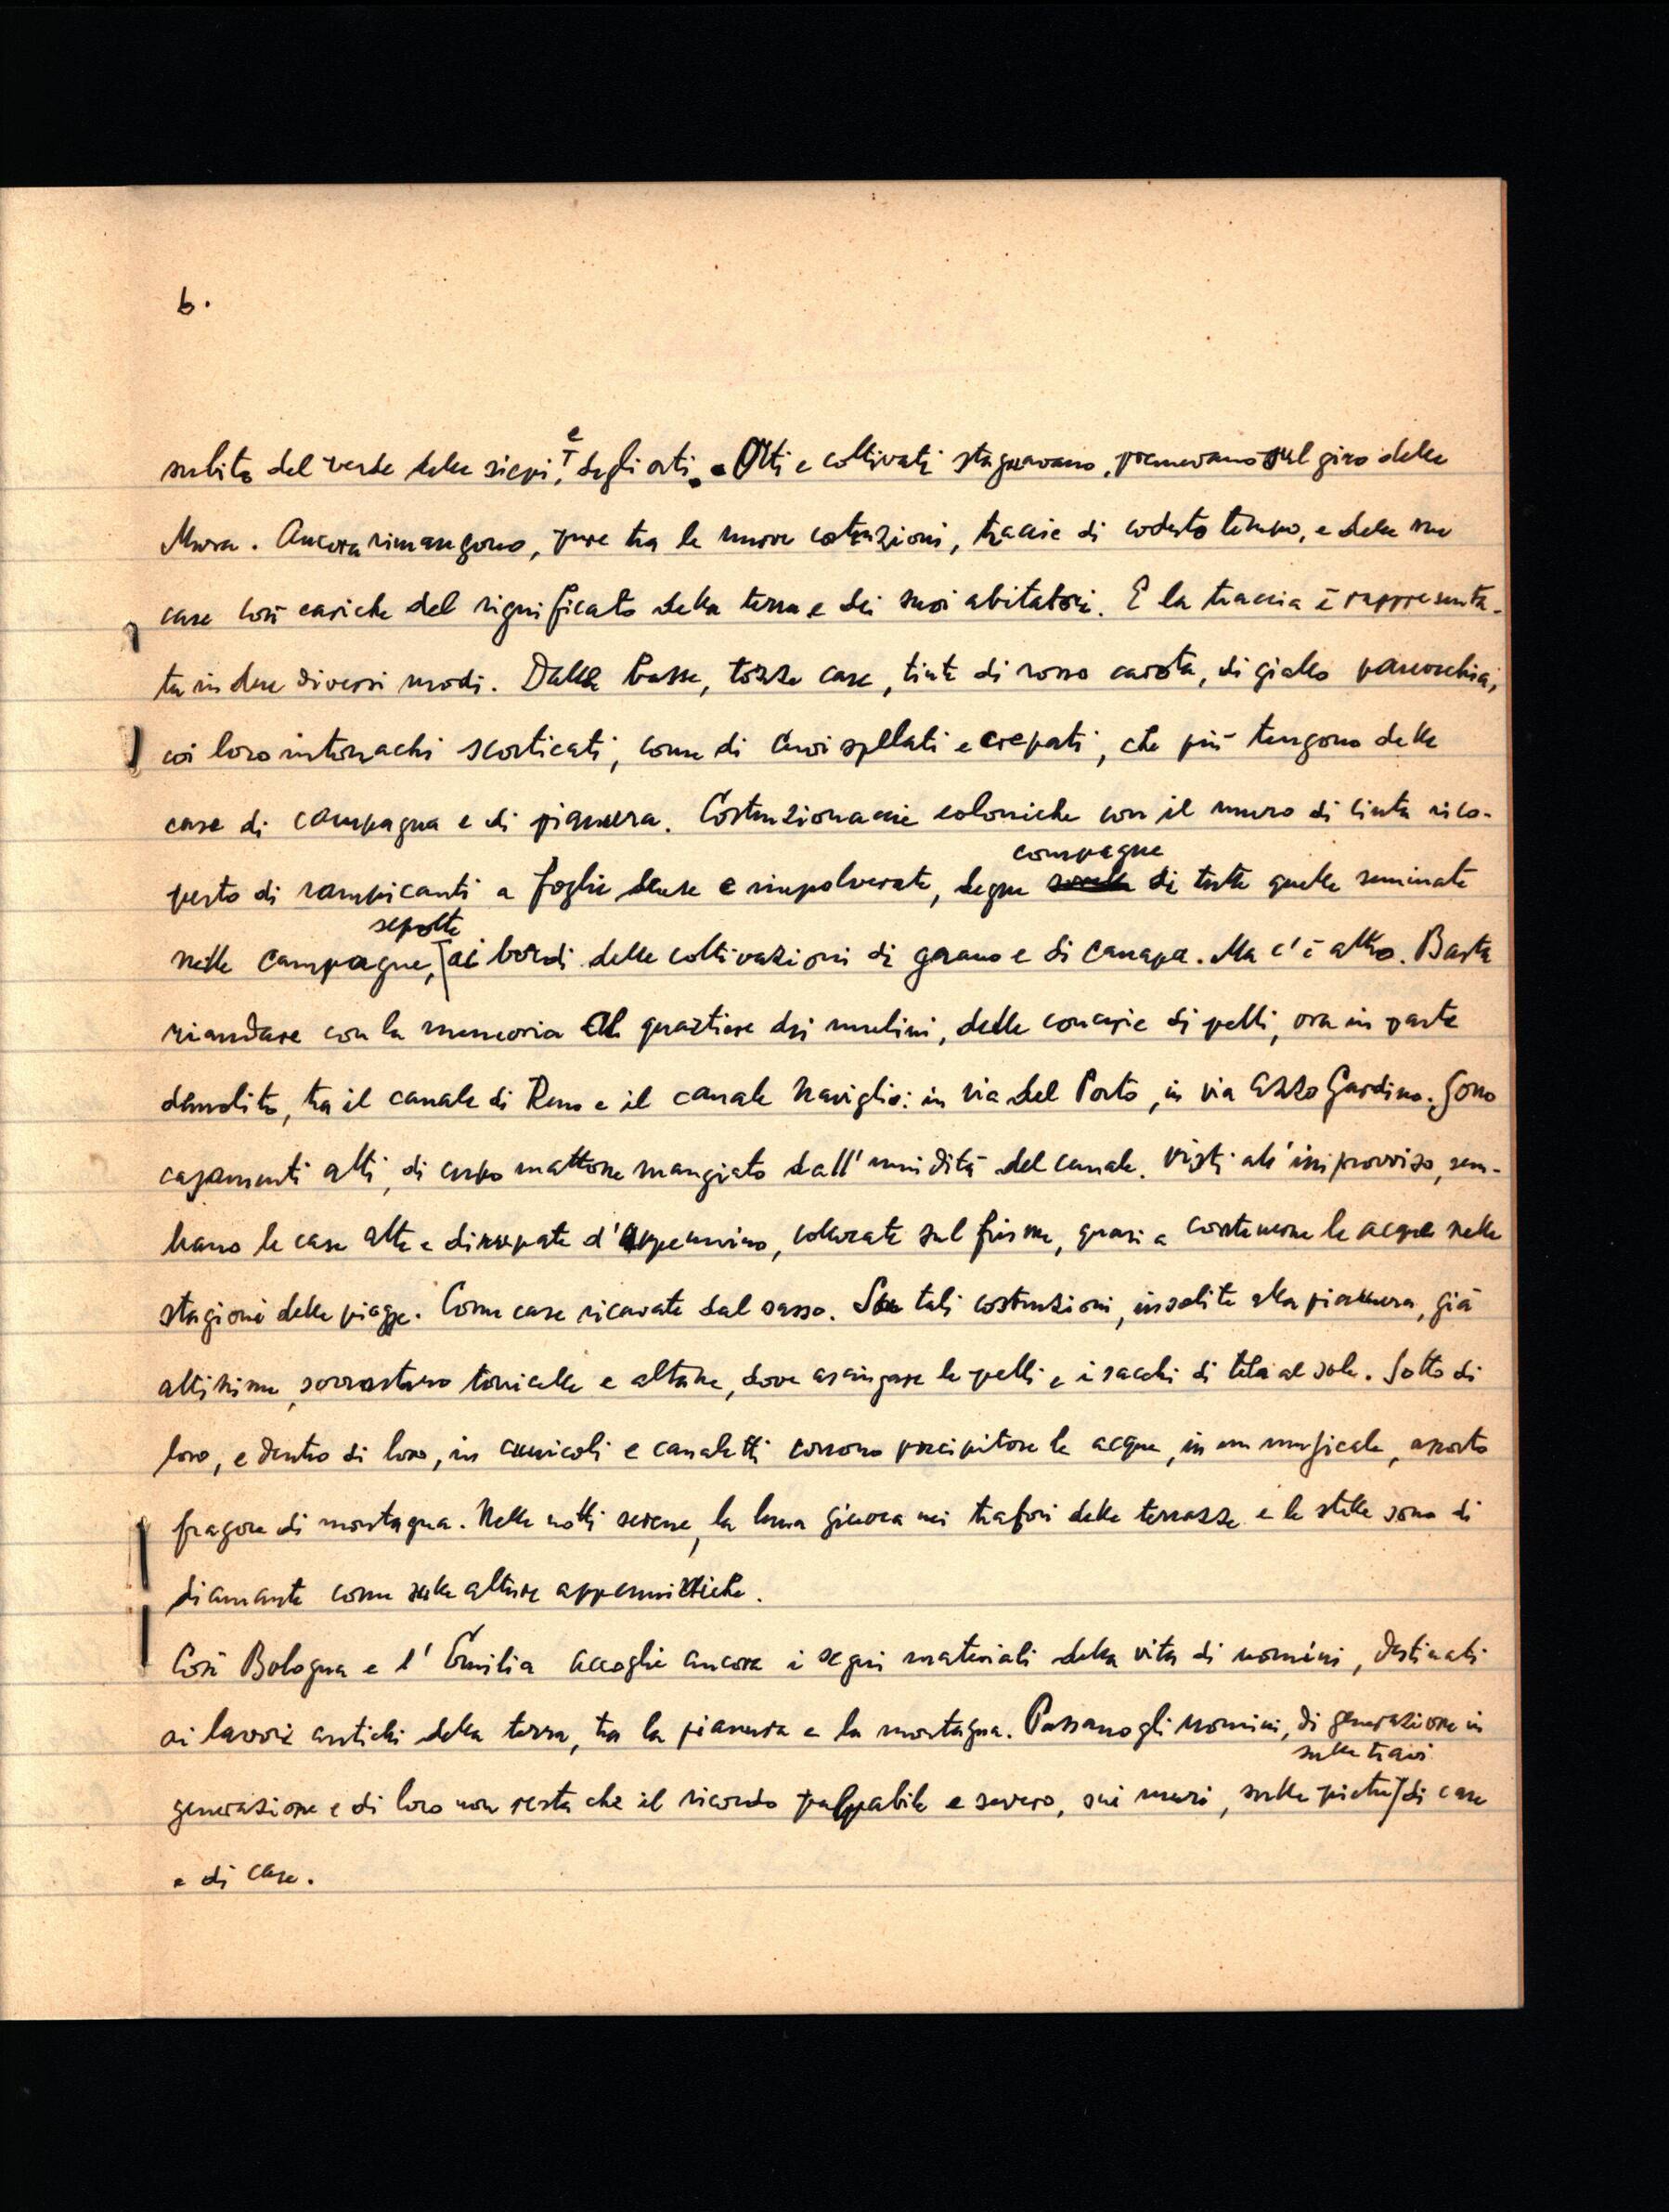 6.
subito del verde delle siepi, e degli orti. Orti e coltivati stagnavano, premevano sul giro delle
Mura. Ancora rimangono, pure tra le nuove costruzioni, traccie di codesto tempo, e delle sue
case così cariche del significato della terra e dei suoi abitatori. E la traccia è rappresenta-
ta in due diversi modi. Dalle basse, tozze case, tinte di rosso carota, di giallo panocchia,
coi loro intonachi scorticati, come di cuoi spellati e crepati, che più tengono delle
case di campagna e di pianura. Costruzionaccie coloniche con il muro di cinta rico-
perto di rampicanti a foglie dense e impolverate, degne compagne di tutte quelle seminate
nelle campagne, sepolte ai bordi delle coltivazioni di grano e di canapa. Ma c'è altro. Basta
riandare con la memoria al quartiere dei mulini, delle concerie di pelli, ora in parte
demolito, tra il canale di Reno e il canale Naviglio: in via del Porto, in via Azzo Gardino. Sono
casamenti alti, di cupo mattone mangiato dall'umidità del canale. Visti all'improvviso, sem-
brano le case alte e dirupate d'Appennino, collocate sul fiume, quasi a contenerne le acque nelle
stagioni delle piogge. Come case ricavate dal sasso. Su tali costruzioni, insolite alla pianura, già
altissime, sovrastano torricelle e altane, dove asciugare le pelli e i sacchi di tela al sole. Sotto di
loro, e dentro di loro, in cunicoli e canaletti corrono precipitose le acque, in un musicale, assorto
fragore di montagna. Nelle notti serene, la luna giuoca nei trafori delle terrazze e le stelle sono di
diamante come sulle alture appenniniche.
Così Bologna e l'Emilia accoglie ancora i segni materiali della vita di uomini, destinati
ai lavori antichi della terra, tra la pianura e la montagna. Passano gli uomini, di generazione in
generazione e di loro non resta che il ricordo palpabile e severo, sui muri, sulle pietre sulle travi di case
e di case.